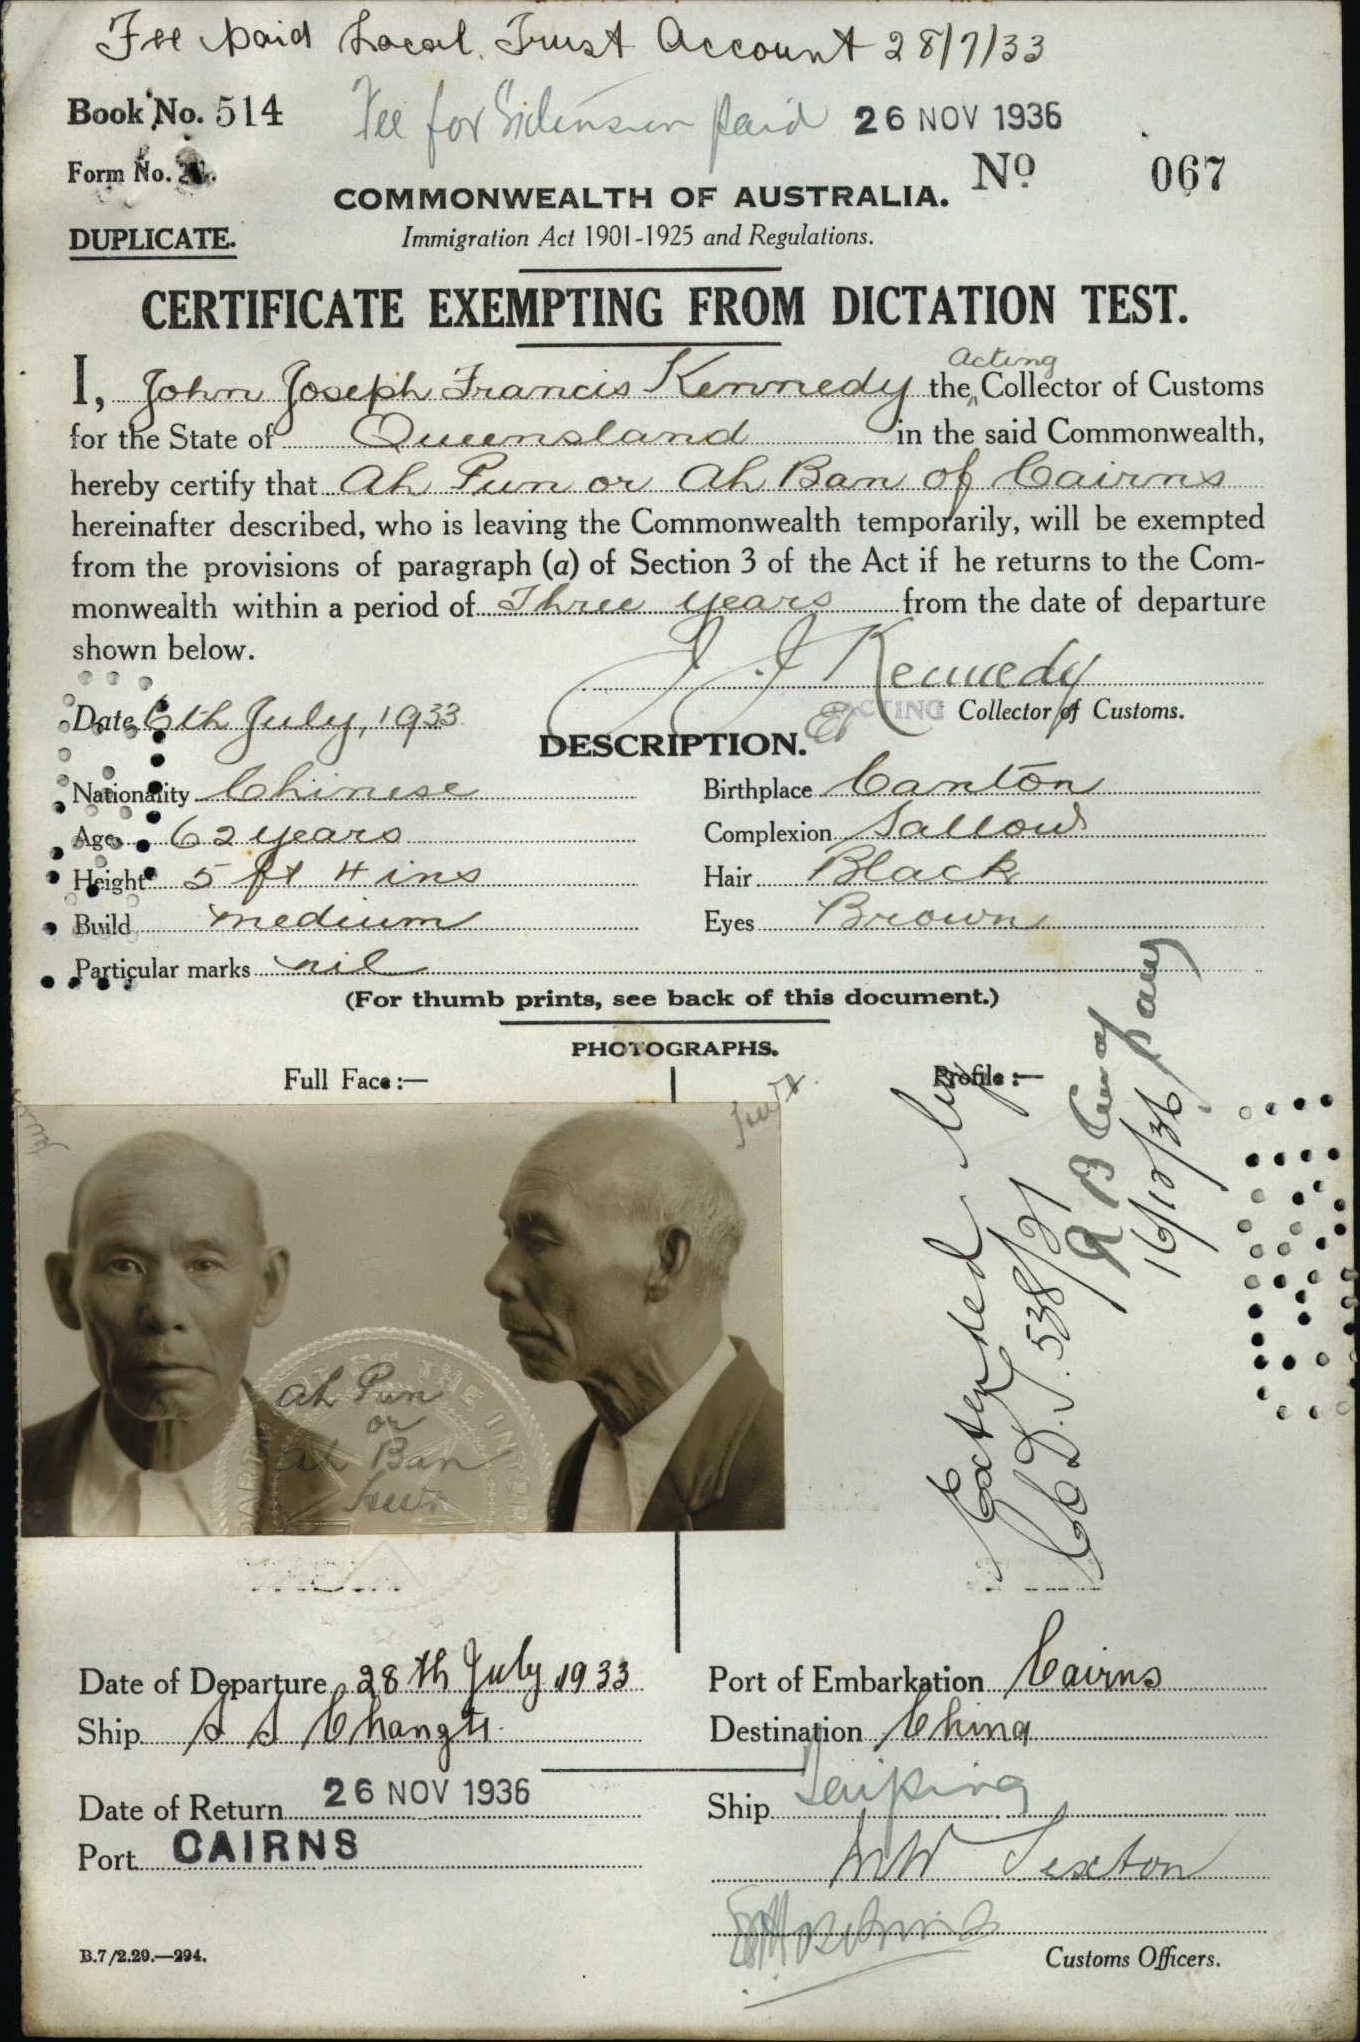 Fee paid Local Trust Account 28/7/33
Book No. 514
Fee for Extension paid 26 NOV 1936
Form No. 21.
No 067
COMMONWEALTH OF AUSTRALIA.
DUPLICATE.
Immigration Act 1901-1925 and Regulations.
CERTIFICATE EXEMPTING FROM DICTATION TEST.
Acting
I, John Joseph Francis Kennedy the Collector of Customs
for the State of Queensland in the said Commonwealth,
hereby certify that Ah Pun or Ah Ban of Cairns
hereinafter described, who is leaving the Commonwealth temporarily, will be exempted
from the provisions of paragraph (a) of Section 3 of the Act if he returns to the Com-
monwealth within a period of Three years from the date of departure
shown below.
J J Kennedy
Date 6th July, 1933
ACTING Collector of Customs.
DESCRIPTION.
Nationality Chinese
Birthplace Canton
Age 62 years
Complexion Sallow
Height 5 ft 4 ins
Hair Black
Build medium
Eyes Brown
Particular marks nil
(For thumb prints, see back of this document.)
PHOTOGRAPHS.
Full Face :—
Profile :—
Extended by
C.D.T. 538/21
16/12/36
Ah Pun
or
Ah Ban
Date of Departure 28th July 1933
Port of Embarkation Cairns
Ship S S Changte
Destination China
Date of Return 26 NOV 1936
Ship Taiping
Port CAIRNS
Sexton
B.7/2.29.—294.
Customs Officers.